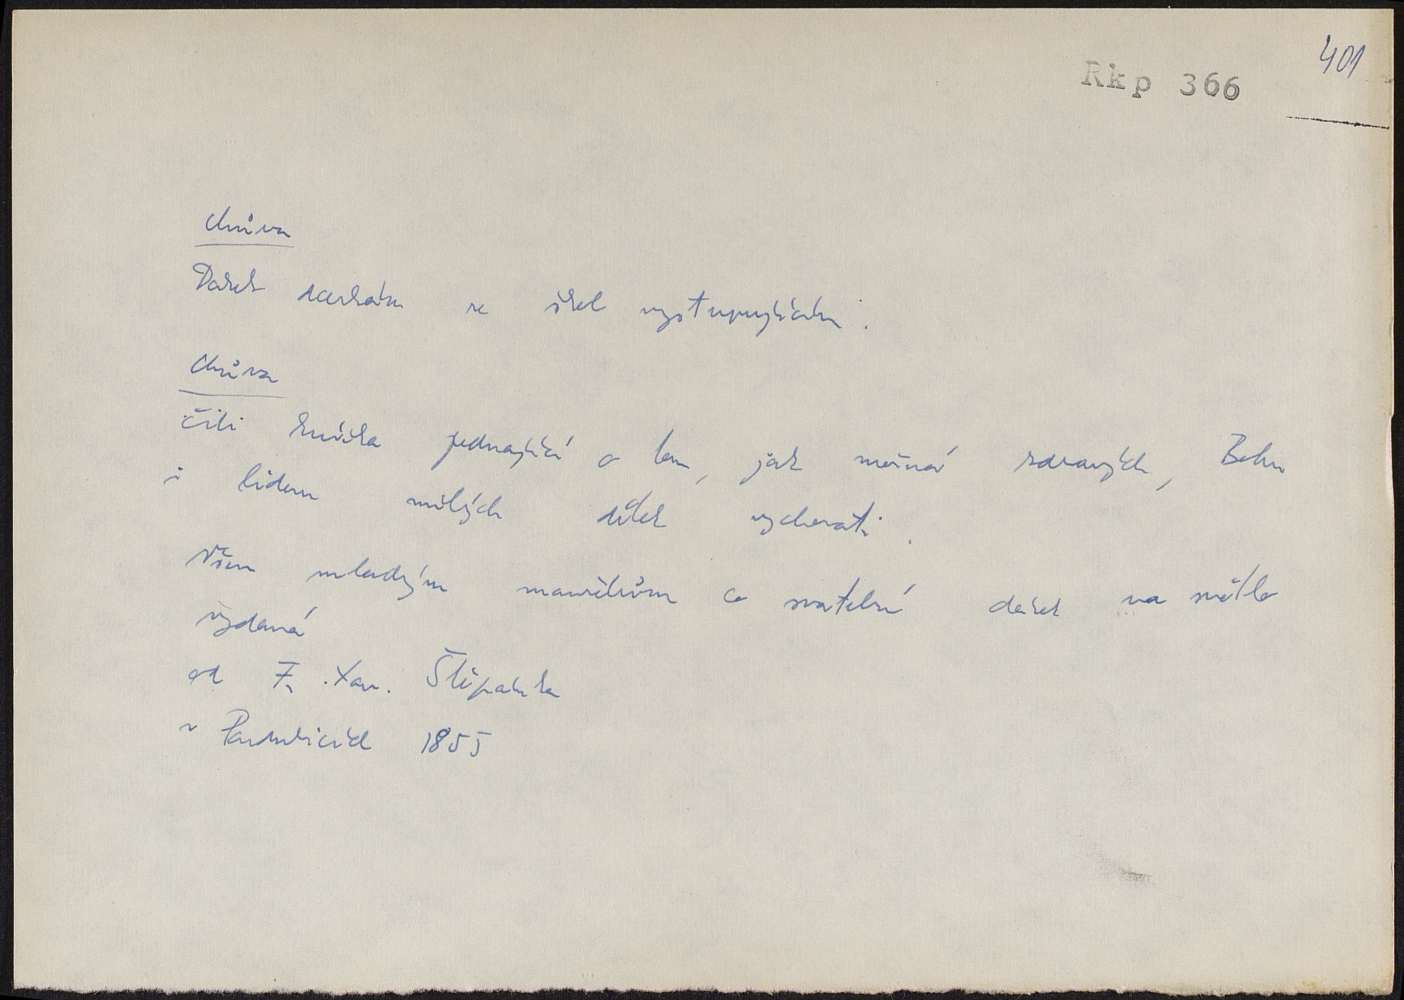 401
Rkp 366
Chůva
Dárek dcerkám ze škol vystupujícím.
Chůva
čili knížka jednající o tom, jak možná zdravých, Bohu
i lidem milých dítek vychovati.
Všem mladým manželům co svatební dárek na světlo
vydaná
od F. Xav. Štěpánka
v Pardubicích 1855